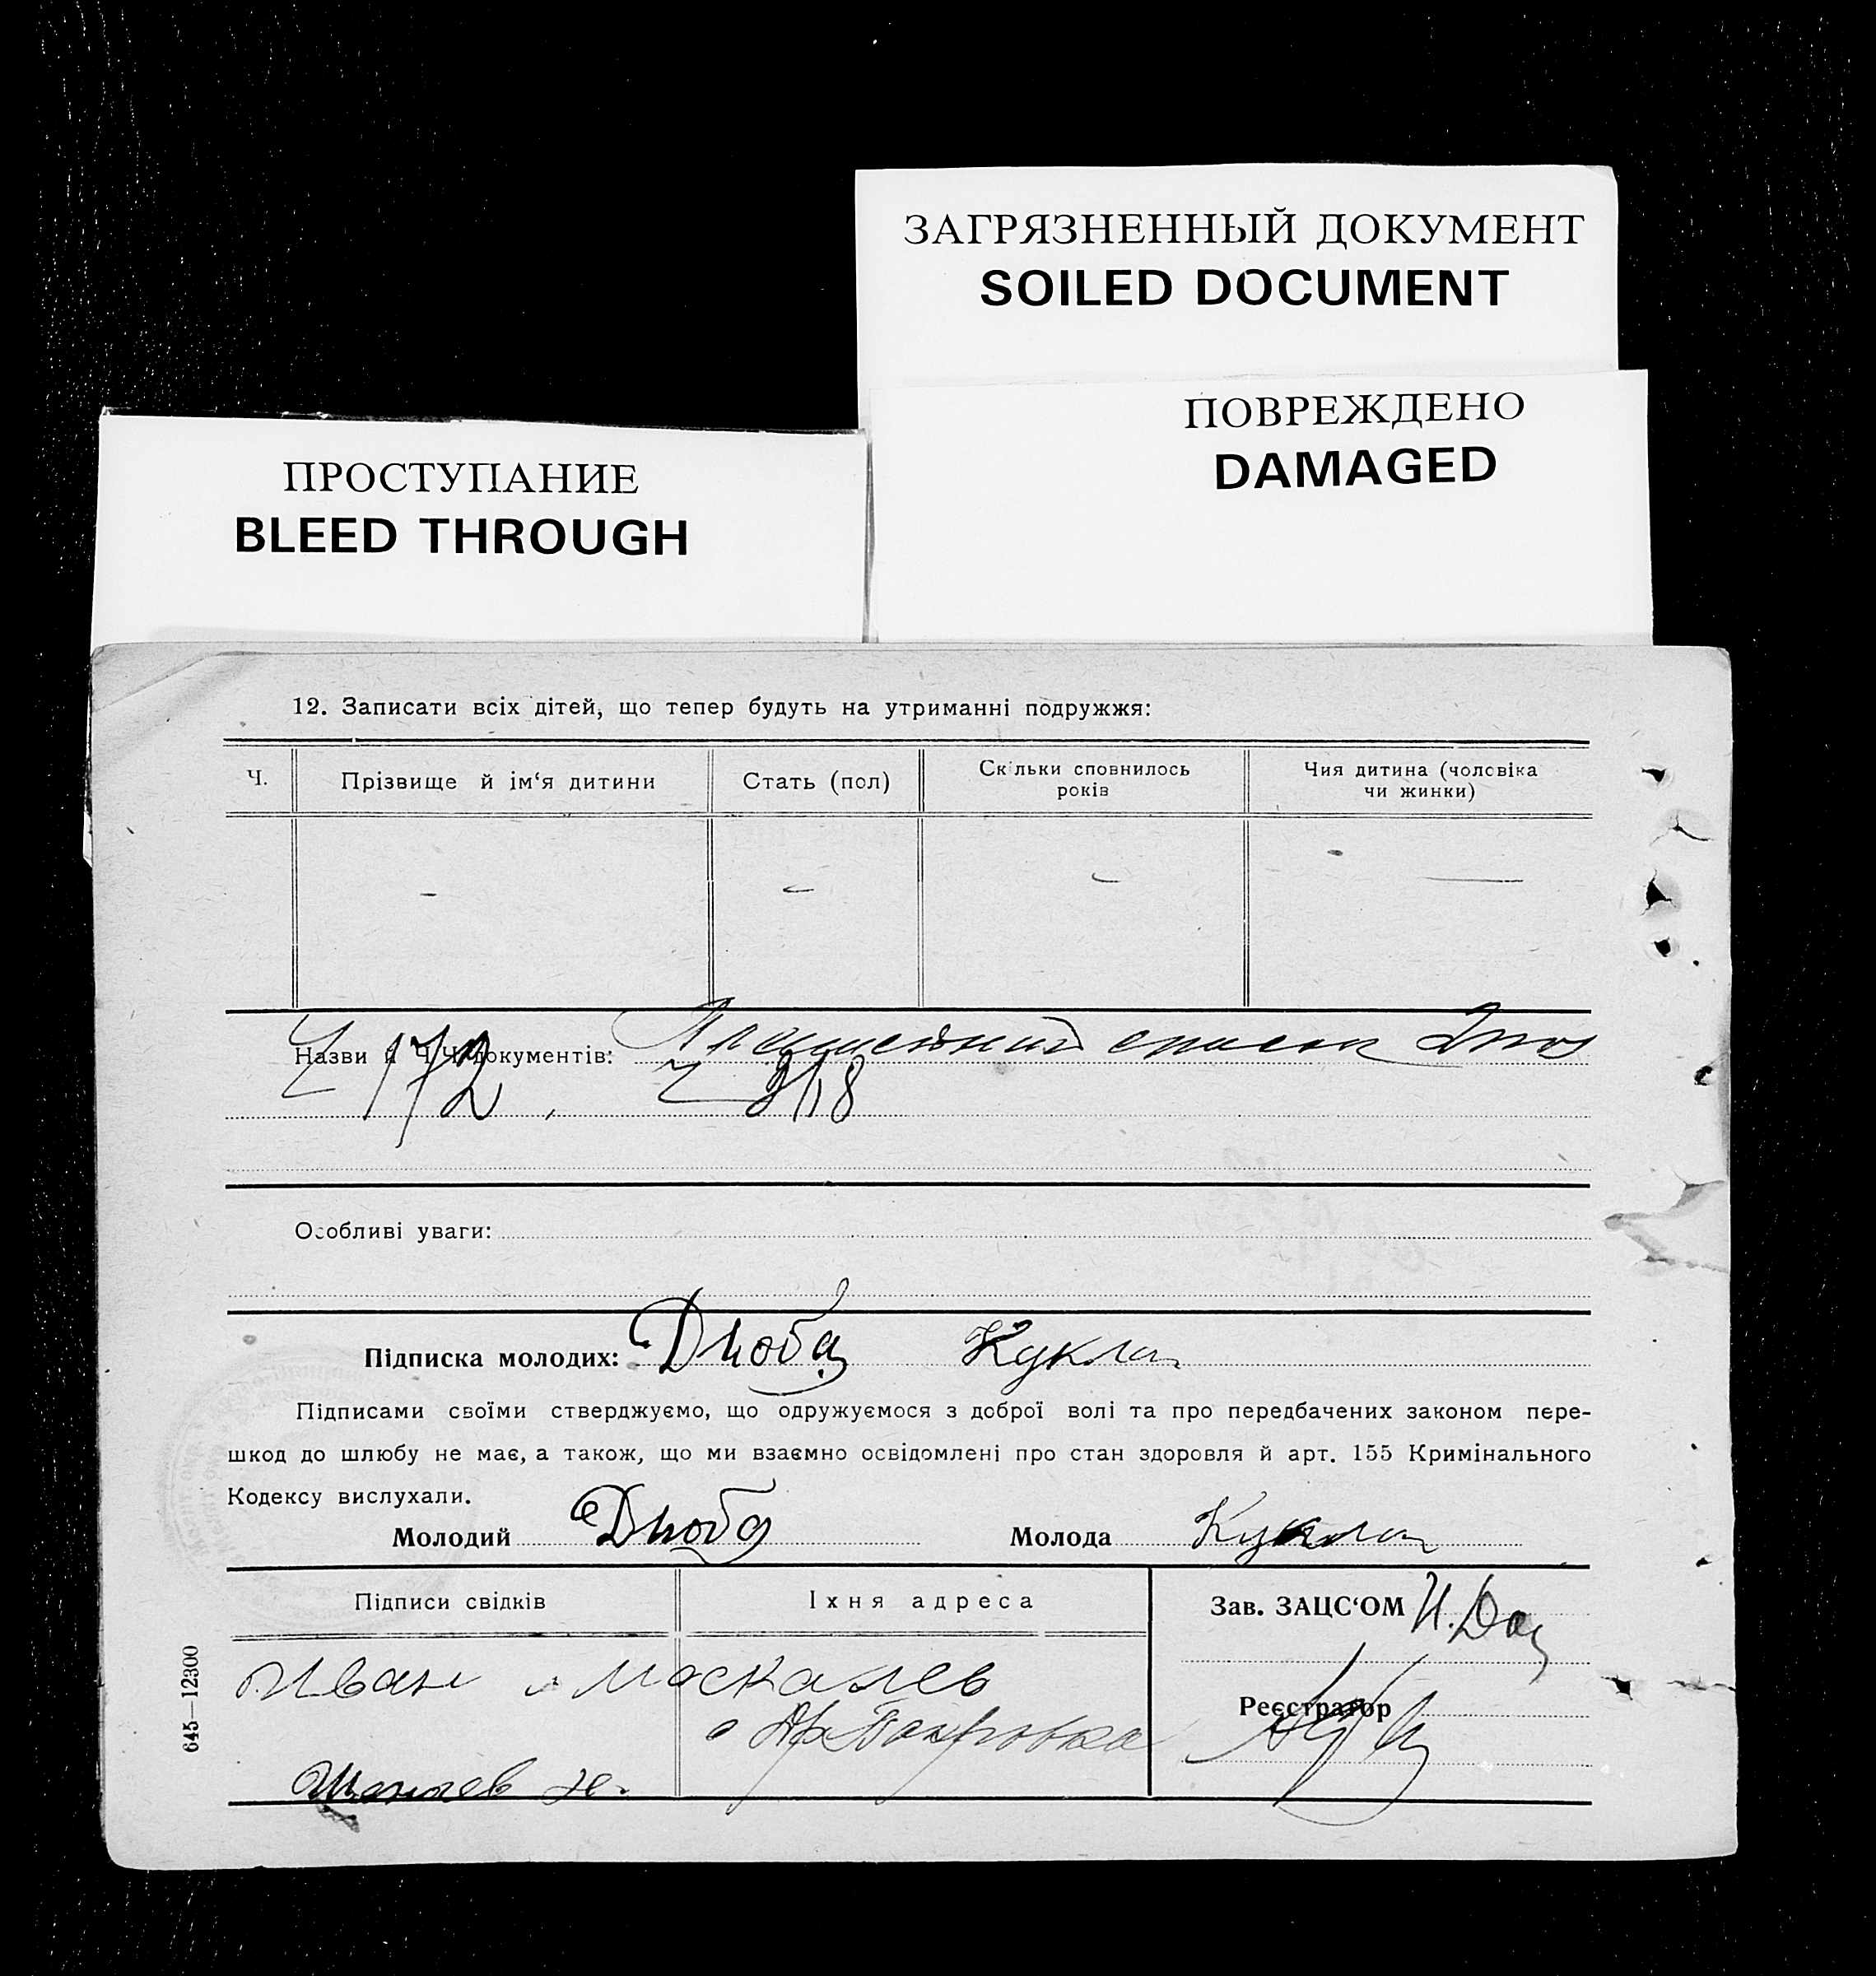 ЗАГРЯЗНЕННЫЙ ДОКУМЕНТ
SOILED DOCUMENT
ПОВРЕЖДЕНО
DAMAGED
ПРОСТУПАНИЕ
BLEED THROUGH
12. Записати всіх дітей, що тепер будуть на утриманні подружжя:
Ч. Прізвище й ім‘я дитини Стать (пол) Скільки сповнилось років Чия дитина (чоловіка чи жинки)
- - - -
Назви й Ч.Ч. документів:
172, 318
Особливі уваги:
Підписка молодих: Дзюба Кукла
Підписами своїми стверджуємо, що одружуємося з доброї волі та про передбачених законом пере-
шкод до шлюбу не має, а також, що ми взаємно освідомлені про стан здоровля й арт. 155 Кримінального
Кодексу вислухали.
Молодий Дзюба Молода Кукла
Підписи свідків Іхня адреса Зав. ЗАЦС‘ОМ
Иван Москалев
Реєстратор
645—12300